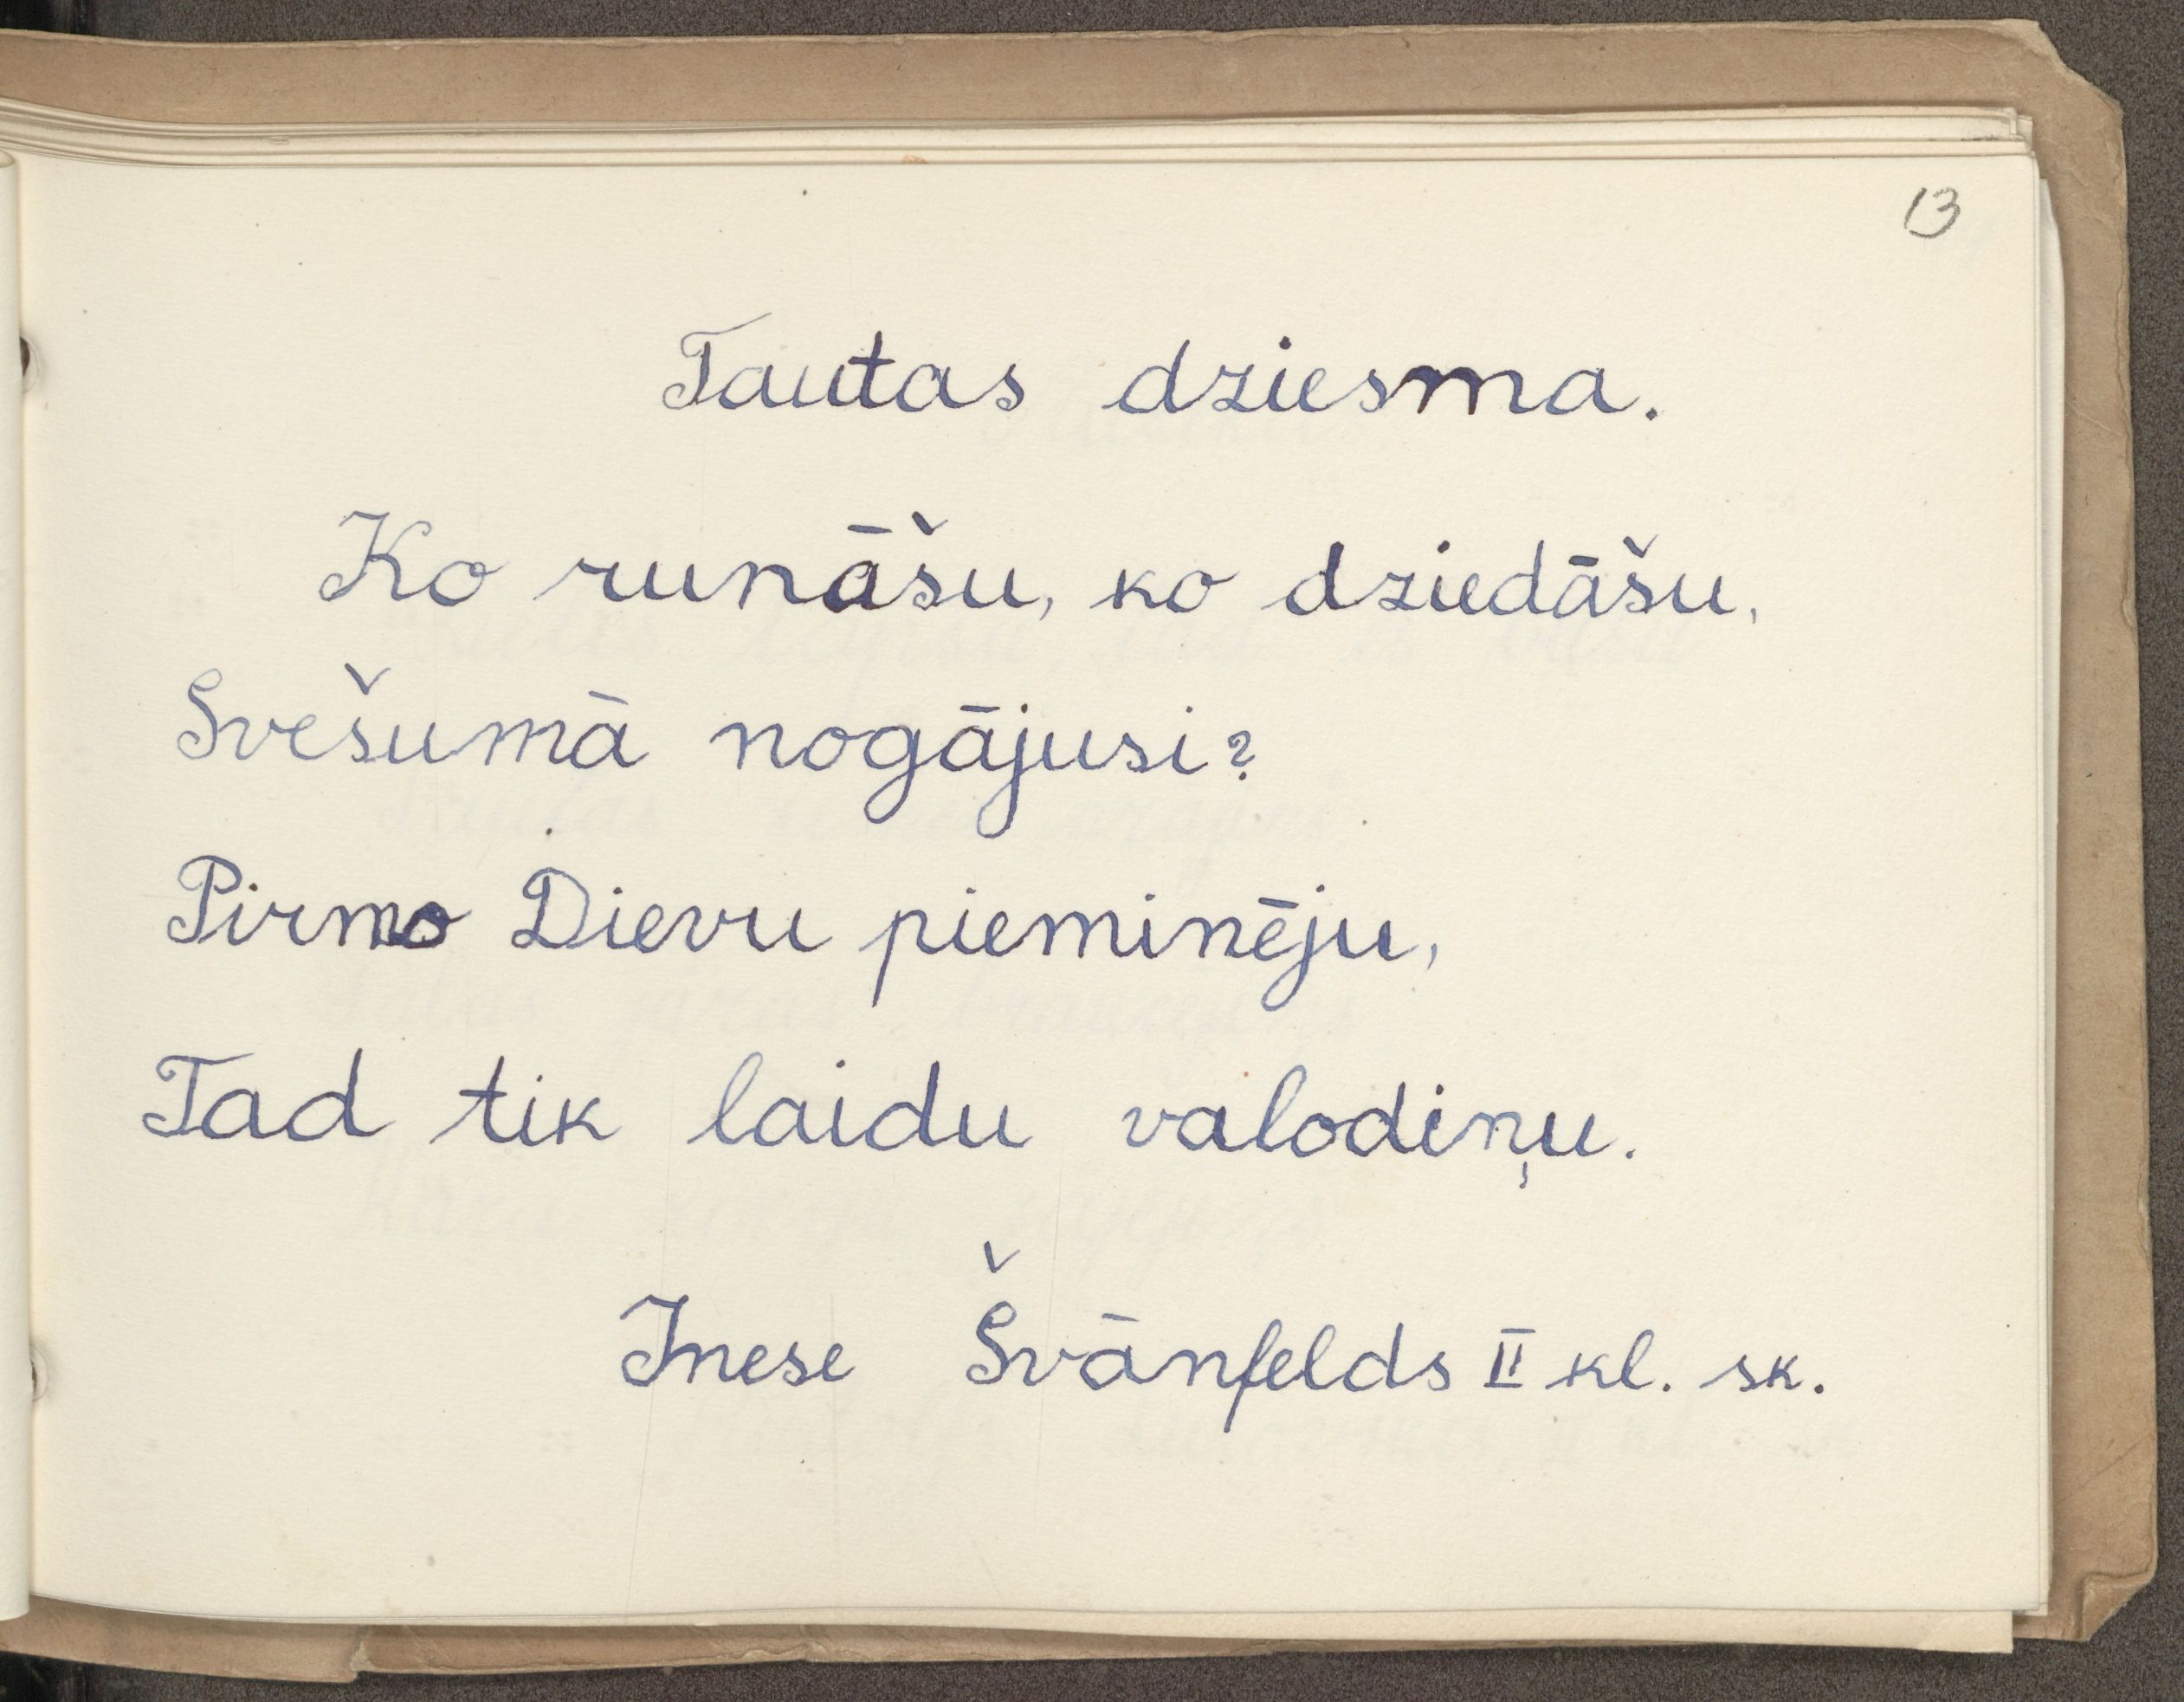 13
Tautas dziesma.
Ko runāšu, ko dziedāšu,
Svešumā nogājusi?
Pirmo Dievu pieminēju,
Tad tik laidu valodiņu.
Inese Švānfelds II kl. sk.